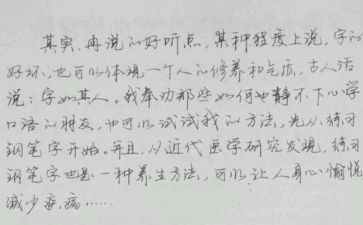 其实，再说的好听点，某种程度上说，字的
好坏，也可以体现一个人的修养和气质，古人话
说：字如其人。我奉劝那些如何也静不下心学
口语的朋友，也可以试试我的方法，先从练习
钢笔字开始。并且，从近代医学研究发现，练习
钢笔字也是一种养生方法，可以让人身心愉悦
减少疾病……